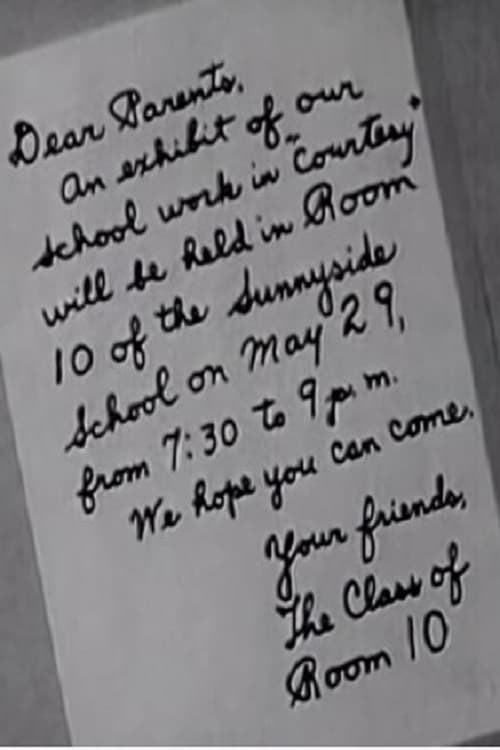 Dear Parents,
An exhibit of our
school work in "Courtesy"
will be held in Room
10 of the Sunnyside
School on May 29,
from 7:30 to 9 p.m.
We hope you can come.
Your friends,
The Class of
Room 10